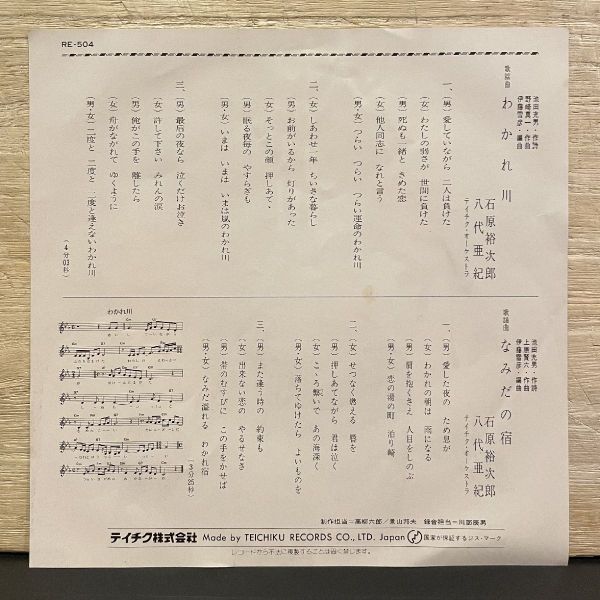 RE-504
歌謡曲
わかれ川
池田充男・作詩
野崎真一・作曲
伊藤雪彦・編曲
石原裕次郎
八代亜紀
テイチク・オーケストラ
一、(男) 愛していながら 二人は負けた
(女) わたしの弱さが 世間に負けた
(男) 死ぬも一緒と きめた恋
(女) 他人同志に なれと言う
(男・女) つらい つらい つらい運命のわかれ川
二、(女) しあわせ一年 ちいさな暮らし
(男) お前がいるから 灯りがあった
(女) そっとこの顔 押しあて、
(男) 眠る夜毎の やすらぎも
(男・女) いまは いまは いまは嵐のわかれ川
三、(男) 最后の夜なら 泣くだけお泣き
(女) 許して下さい みれんの涙
(男) 俺がこの手を 離したら
(女) 舟がながれて ゆくように
(男・女) 二度と 二度と 二度と逢えないわかれ川
(4分03秒)
歌謡曲
なみだの宿
池田充男・作詩
上原賢六・作曲
伊藤雪彦・編曲
石原裕次郎
八代亜紀
テイチク・オーケストラ
一、(男) 愛した夜の ため息が
(女) わかれの朝は 雨になる
(男) 肩を抱くさえ 人目をしのぶ
(男・女) 恋の湯の町 泊り崎
二、(女) せつなく燃える 唇を
(男) 押しあてながら 君は泣く
(女) こゝろ繋いで あの海深く
(男・女) 落ちてゆけたら よいものを
三、(男) また逢う時の 約束も
(女) 出来ない恋の やるせなさ
(男) 帯のむすびに この手をかせば
(男・女) なみだ溢れる わかれ宿
(3分25秒)
わかれ川
制作担当=高柳六郎/景山邦夫 録音担当=川部辰男
テイチク株式会社 Made by TEICHIKU RECORDS CO., LTD. Japan 国家が保証するジス・マーク
レコードから不法に複製することは固く禁じます。